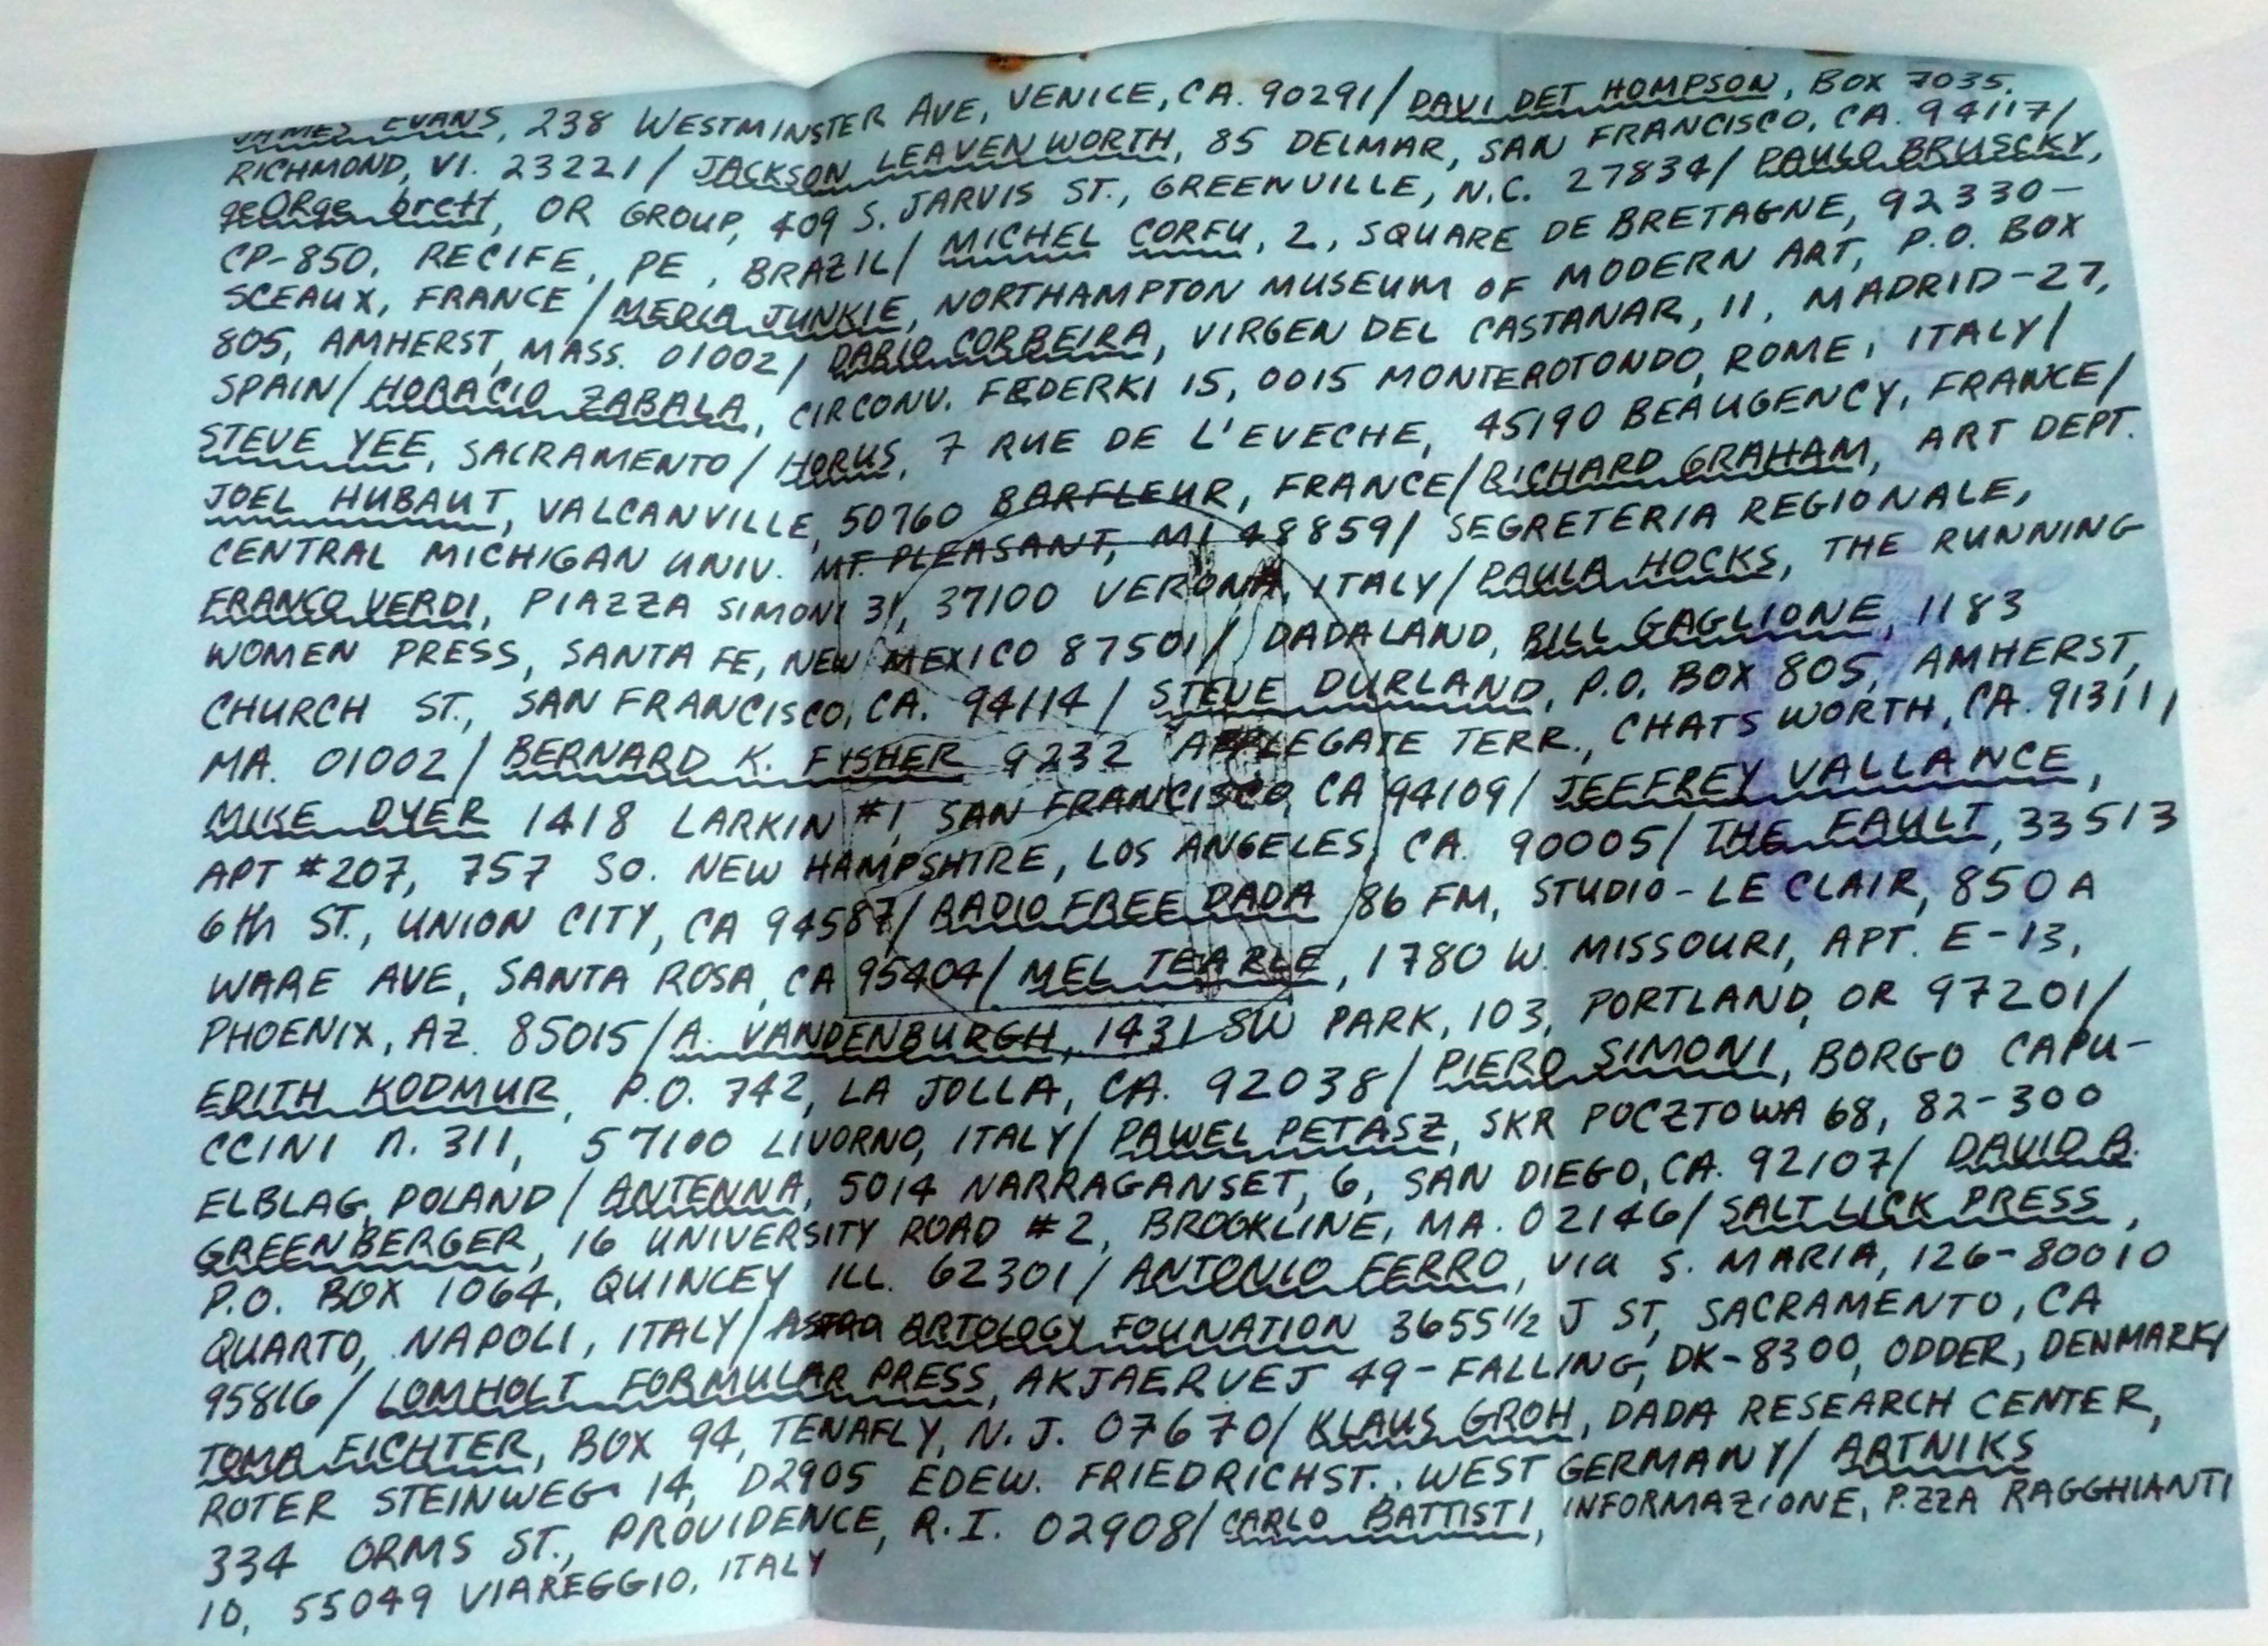 JAMES EVANS, 238 WESTMINSTER AVE, VENICE, CA. 90291/ DAVI DET HOMPSON, BOX 7035,
RICHMOND, VI. 23221/ JACKSON LEAVENWORTH, 85 DELMAR, SAN FRANCISCO, CA. 94117/
geORge brett, OR GROUP, 409 S. JARVIS ST., GREENVILLE, N.C. 27834/ PAULO BRUSCKY,
CP-850, RECIFE, PE, BRAZIL/ MICHEL CORFU, 2, SQUARE DE BRETAGNE, 92330-
SCEAUX, FRANCE / MEDIA JUNKIE, NORTHAMPTON MUSEUM OF MODERN ART, P.O. BOX
805, AMHERST, MASS. 01002/ DARIO CORBEIRA, VIRGEN DEL CASTANAR, 11, MADRID-27,
SPAIN/ HORACIO ZABALA, CIRCONV. FEDERKI 15, 0015 MONTEROTONDO, ROME, ITALY/
STEVE YEE, SACRAMENTO/ HORUS, 7 RUE DE L'EVECHE, 45190 BEAUGENCY, FRANCE/
JOEL HUBAUT, VALCANVILLE, 50760 BARFLEUR, FRANCE/ RICHARD GRAHAM, ART DEPT.
CENTRAL MICHIGAN UNIV. MT. PLEASANT, MI 48859/ SEGRETERIA REGIONALE,
FRANCO VERDI, PIAZZA SIMONI 31, 37100 VERONA, ITALY/ PAULA HOCKS, THE RUNNING
WOMEN PRESS, SANTA FE, NEW MEXICO 87501/ DADALAND, BILL GAGLIONE, 1183
CHURCH ST., SAN FRANCISCO, CA. 94114/ STEVE DURLAND, P.O. BOX 805, AMHERST,
MA. 01002/ BERNARD K. FYSHER 9232 APPLEGATE TERR., CHATSWORTH, CA. 91311/
MIKE DYER 1418 LARKIN #1, SAN FRANCISCO, CA 94109/ JEFFREY VALLANCE,
APT #207, 757 SO. NEW HAMPSHIRE, LOS ANGELES, CA. 90005/ THE FAULT, 33513
6th ST., UNION CITY, CA 94587/ RADIO FREE DADA 86 FM, STUDIO-LE CLAIR, 850 A
WARE AVE, SANTA ROSA, CA 95404/ MEL TEARLE, 1780 W. MISSOURI, APT. E-13,
PHOENIX, AZ. 85015/ A. VANDENBURGH, 1431 SW PARK, 103, PORTLAND, OR 97201/
EDITH KODMUR, P.O. 742, LA JOLLA, CA. 92038/ PIERO SIMONI, BORGO CAPU-
CCINI n. 311, 57100 LIVORNO, ITALY/ PAWEL PETASZ, SKR POCZTOWA 68, 82-300
ELBLAG, POLAND/ ANTENNA, 5014 NARRAGANSET, 6, SAN DIEGO, CA. 92107/ DAVID B.
GREENBERGER, 16 UNIVERSITY ROAD #2, BROOKLINE, MA. 02146/ SALT LICK PRESS,
P.O. BOX 1064, QUINCEY ILL. 62301/ ANTONIO FERRO, via S. MARIA, 126-80010
QUARTO, NAPOLI, ITALY/ ASTRO ARTOLOGY FOUNATION 3655 1/2 J ST, SACRAMENTO, CA
95816/ LOMHOLT FORMULAR PRESS, AKJAERVEJ 49-FALLING, DK-8300, ODDER, DENMARK/
TOMA FICHTER, BOX 94, TENAFLY, N.J. 07670/ KLAUS GROH, DADA RESEARCH CENTER,
ROTER STEINWEG 14, D2905 EDEW. FRIEDRICHST., WEST GERMANY/ ARTNIKS
334 ORMS ST., PROVIDENCE, R.I. 02908/ CARLO BATTISTI, INFORMAZIONE, P.ZZA RAGGHIANTI
10, 55049 VIAREGGIO, ITALY